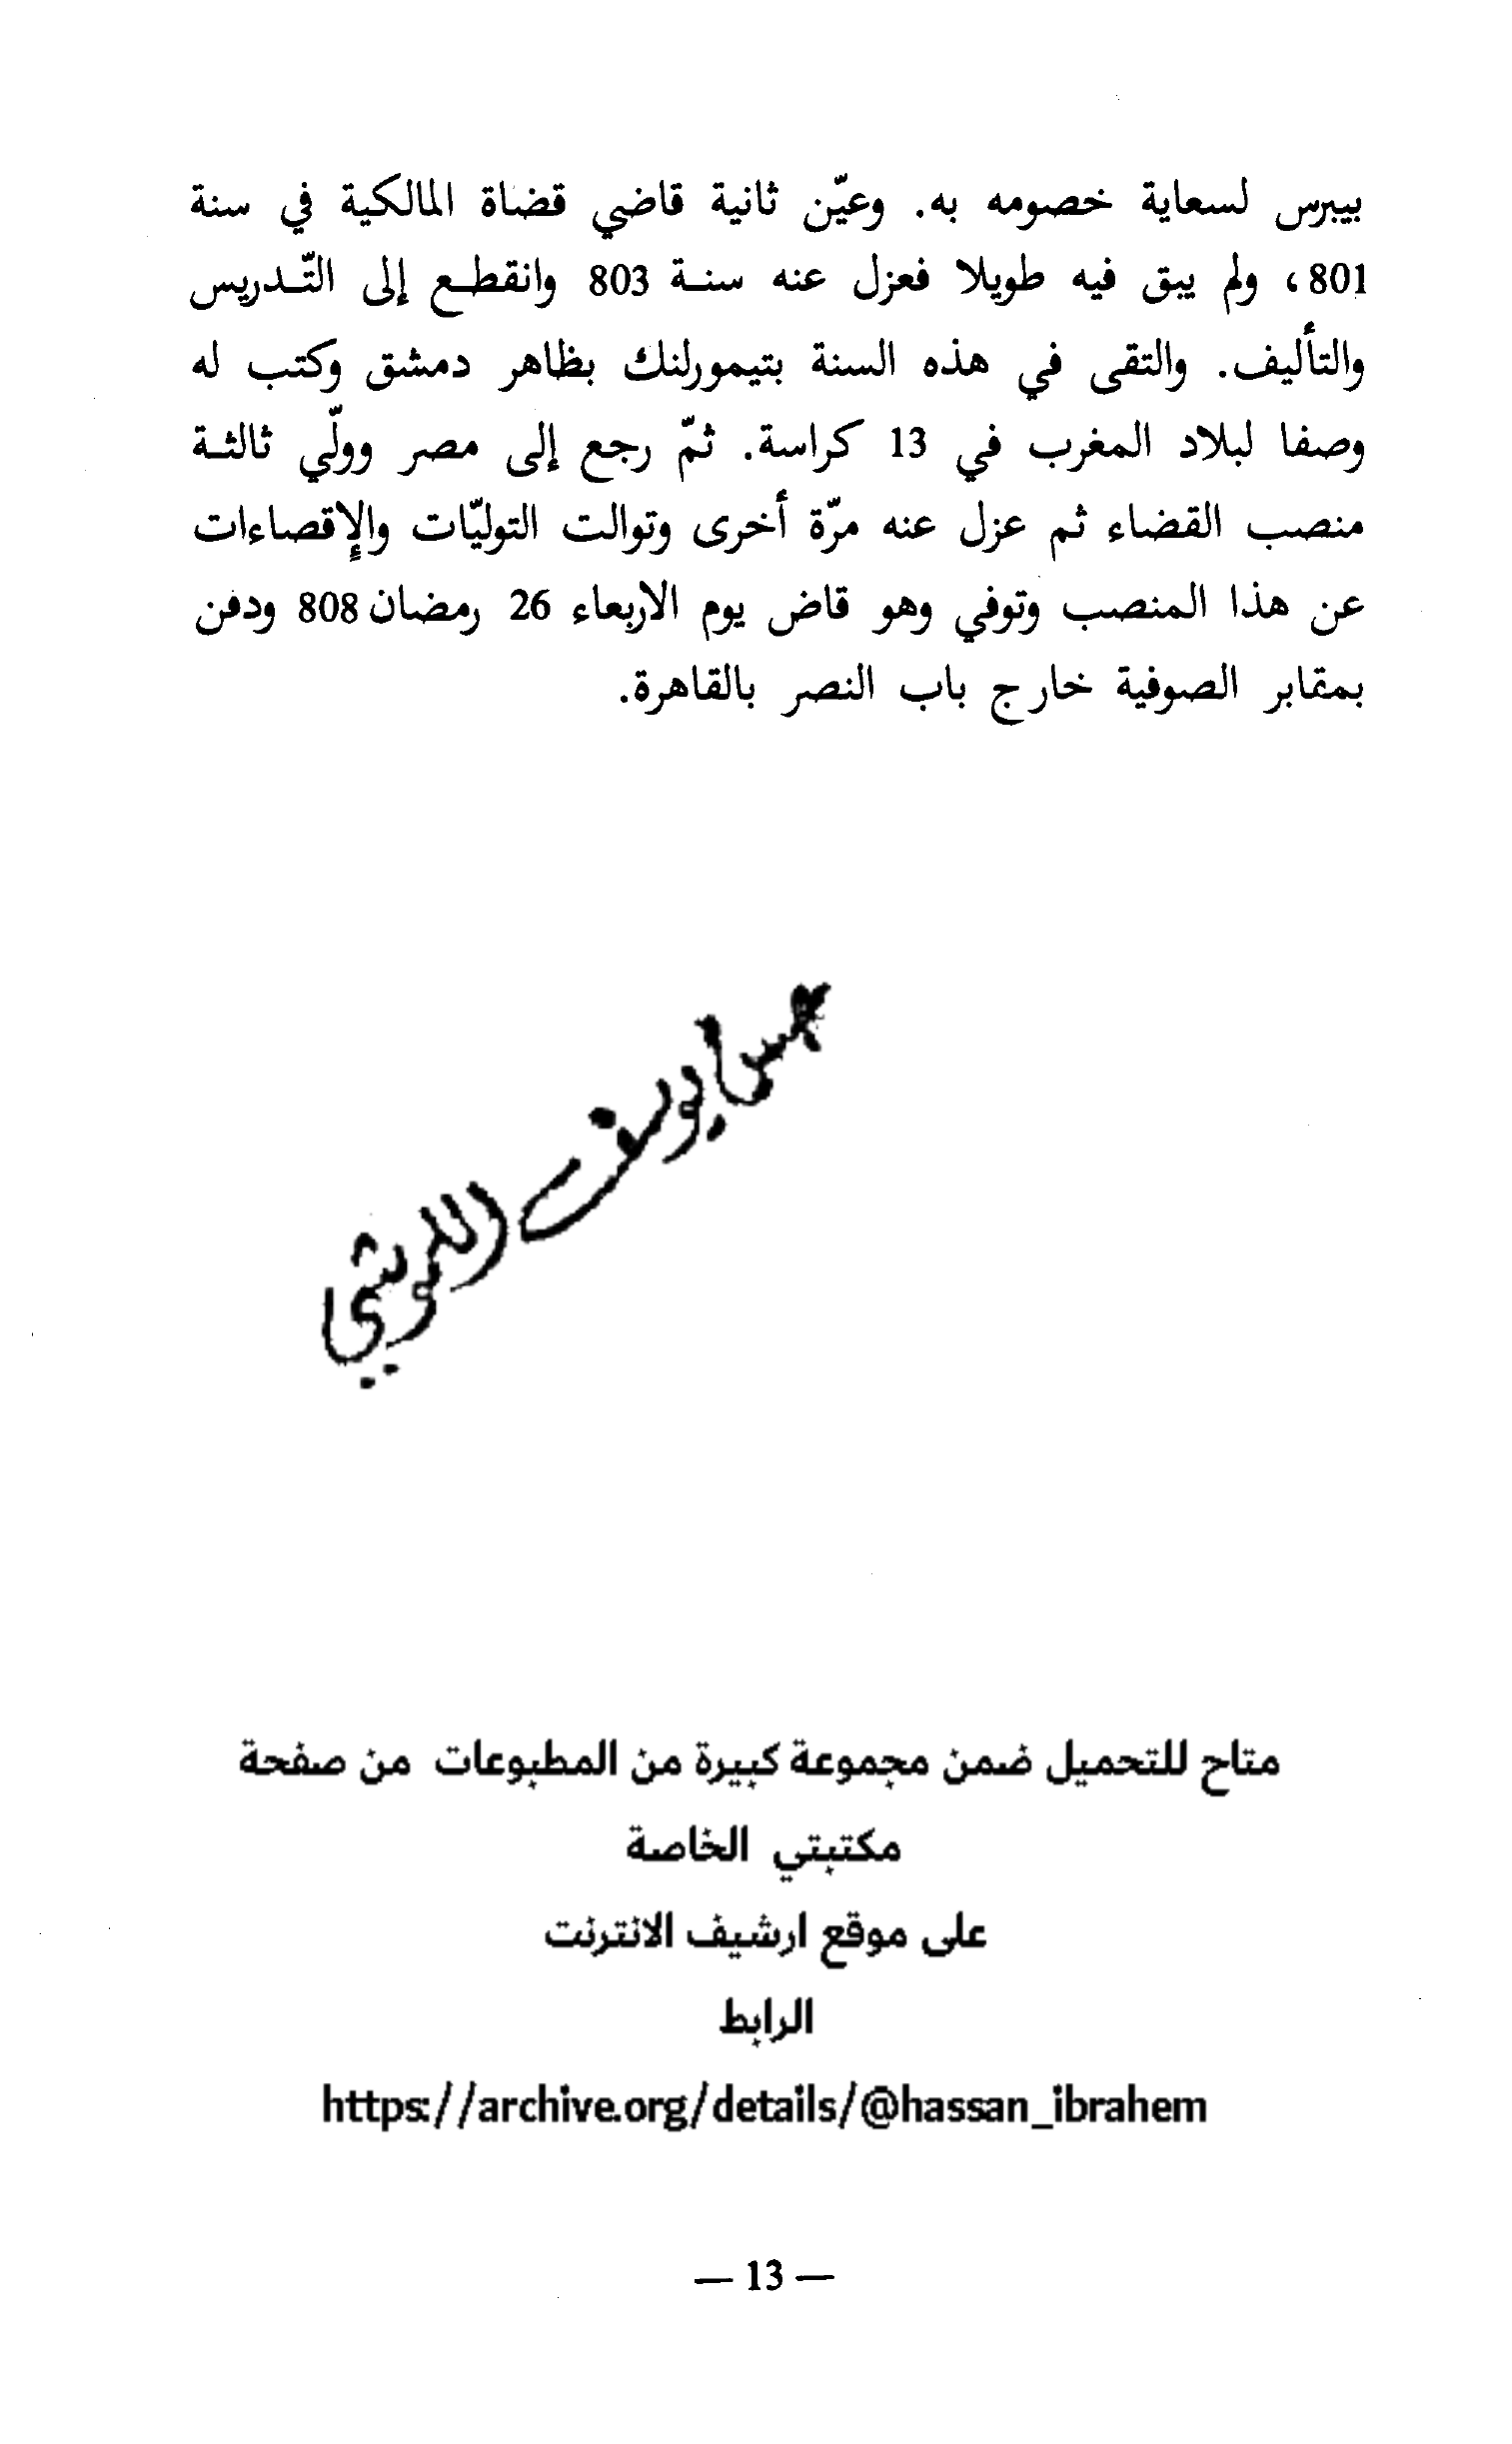 بيبرس لسعاية خصومه به. وعيّن ثانية قاضي قضاة المالكية في سنة
801، ولم يبق فيه طويلا فعزل عنه سنة 803 وانقطع إلى التّدريس
والتأليف. والتقى في هذه السنة بتيمورلنك بظاهر دمشق وكتب له
وصفا لبلاد المغرب في 13 كراسة. ثمّ رجع إلى مصر وولّي ثالثة
منصب القضاء ثم عزل عنه مرّة أخرى وتوالت التوليّات والإقصاءات
عن هذا المنصب وتوفي وهو قاض يوم الاربعاء 26 رمضان 808 ودفن
بمقابر الصوفية خارج باب النصر بالقاهرة.
يوسف
متاح للتحميل ضمن مجموعة كبيرة من المطبوعات من صفحة
مكتبتي الخاصة
على موقع ارشيف الانترنت
الرابط
https://archive.org/details/@hassan_ibrahem
— 13 —